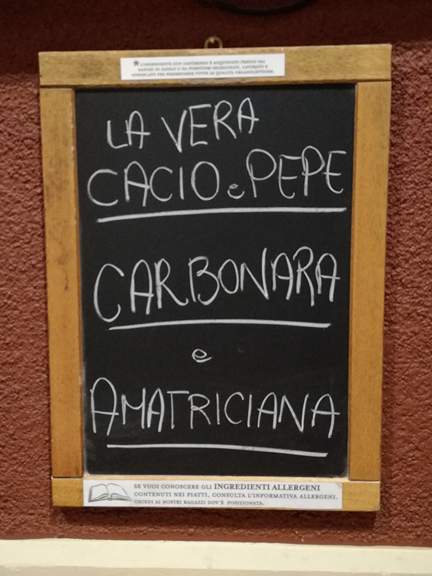 LA VERA
CACIO e PEPE
CARBONARA
e
AMATRICIANA
SE VUOI CONOSCERE GLI INGREDIENTI ALLERGENI
CONTENUTI NEI PIATTI, CONSULTA L'INFORMATIVA ALLERGENI.
CHIEDI AI NOSTRI RAGAZZI DOV'È POSIZIONATA.